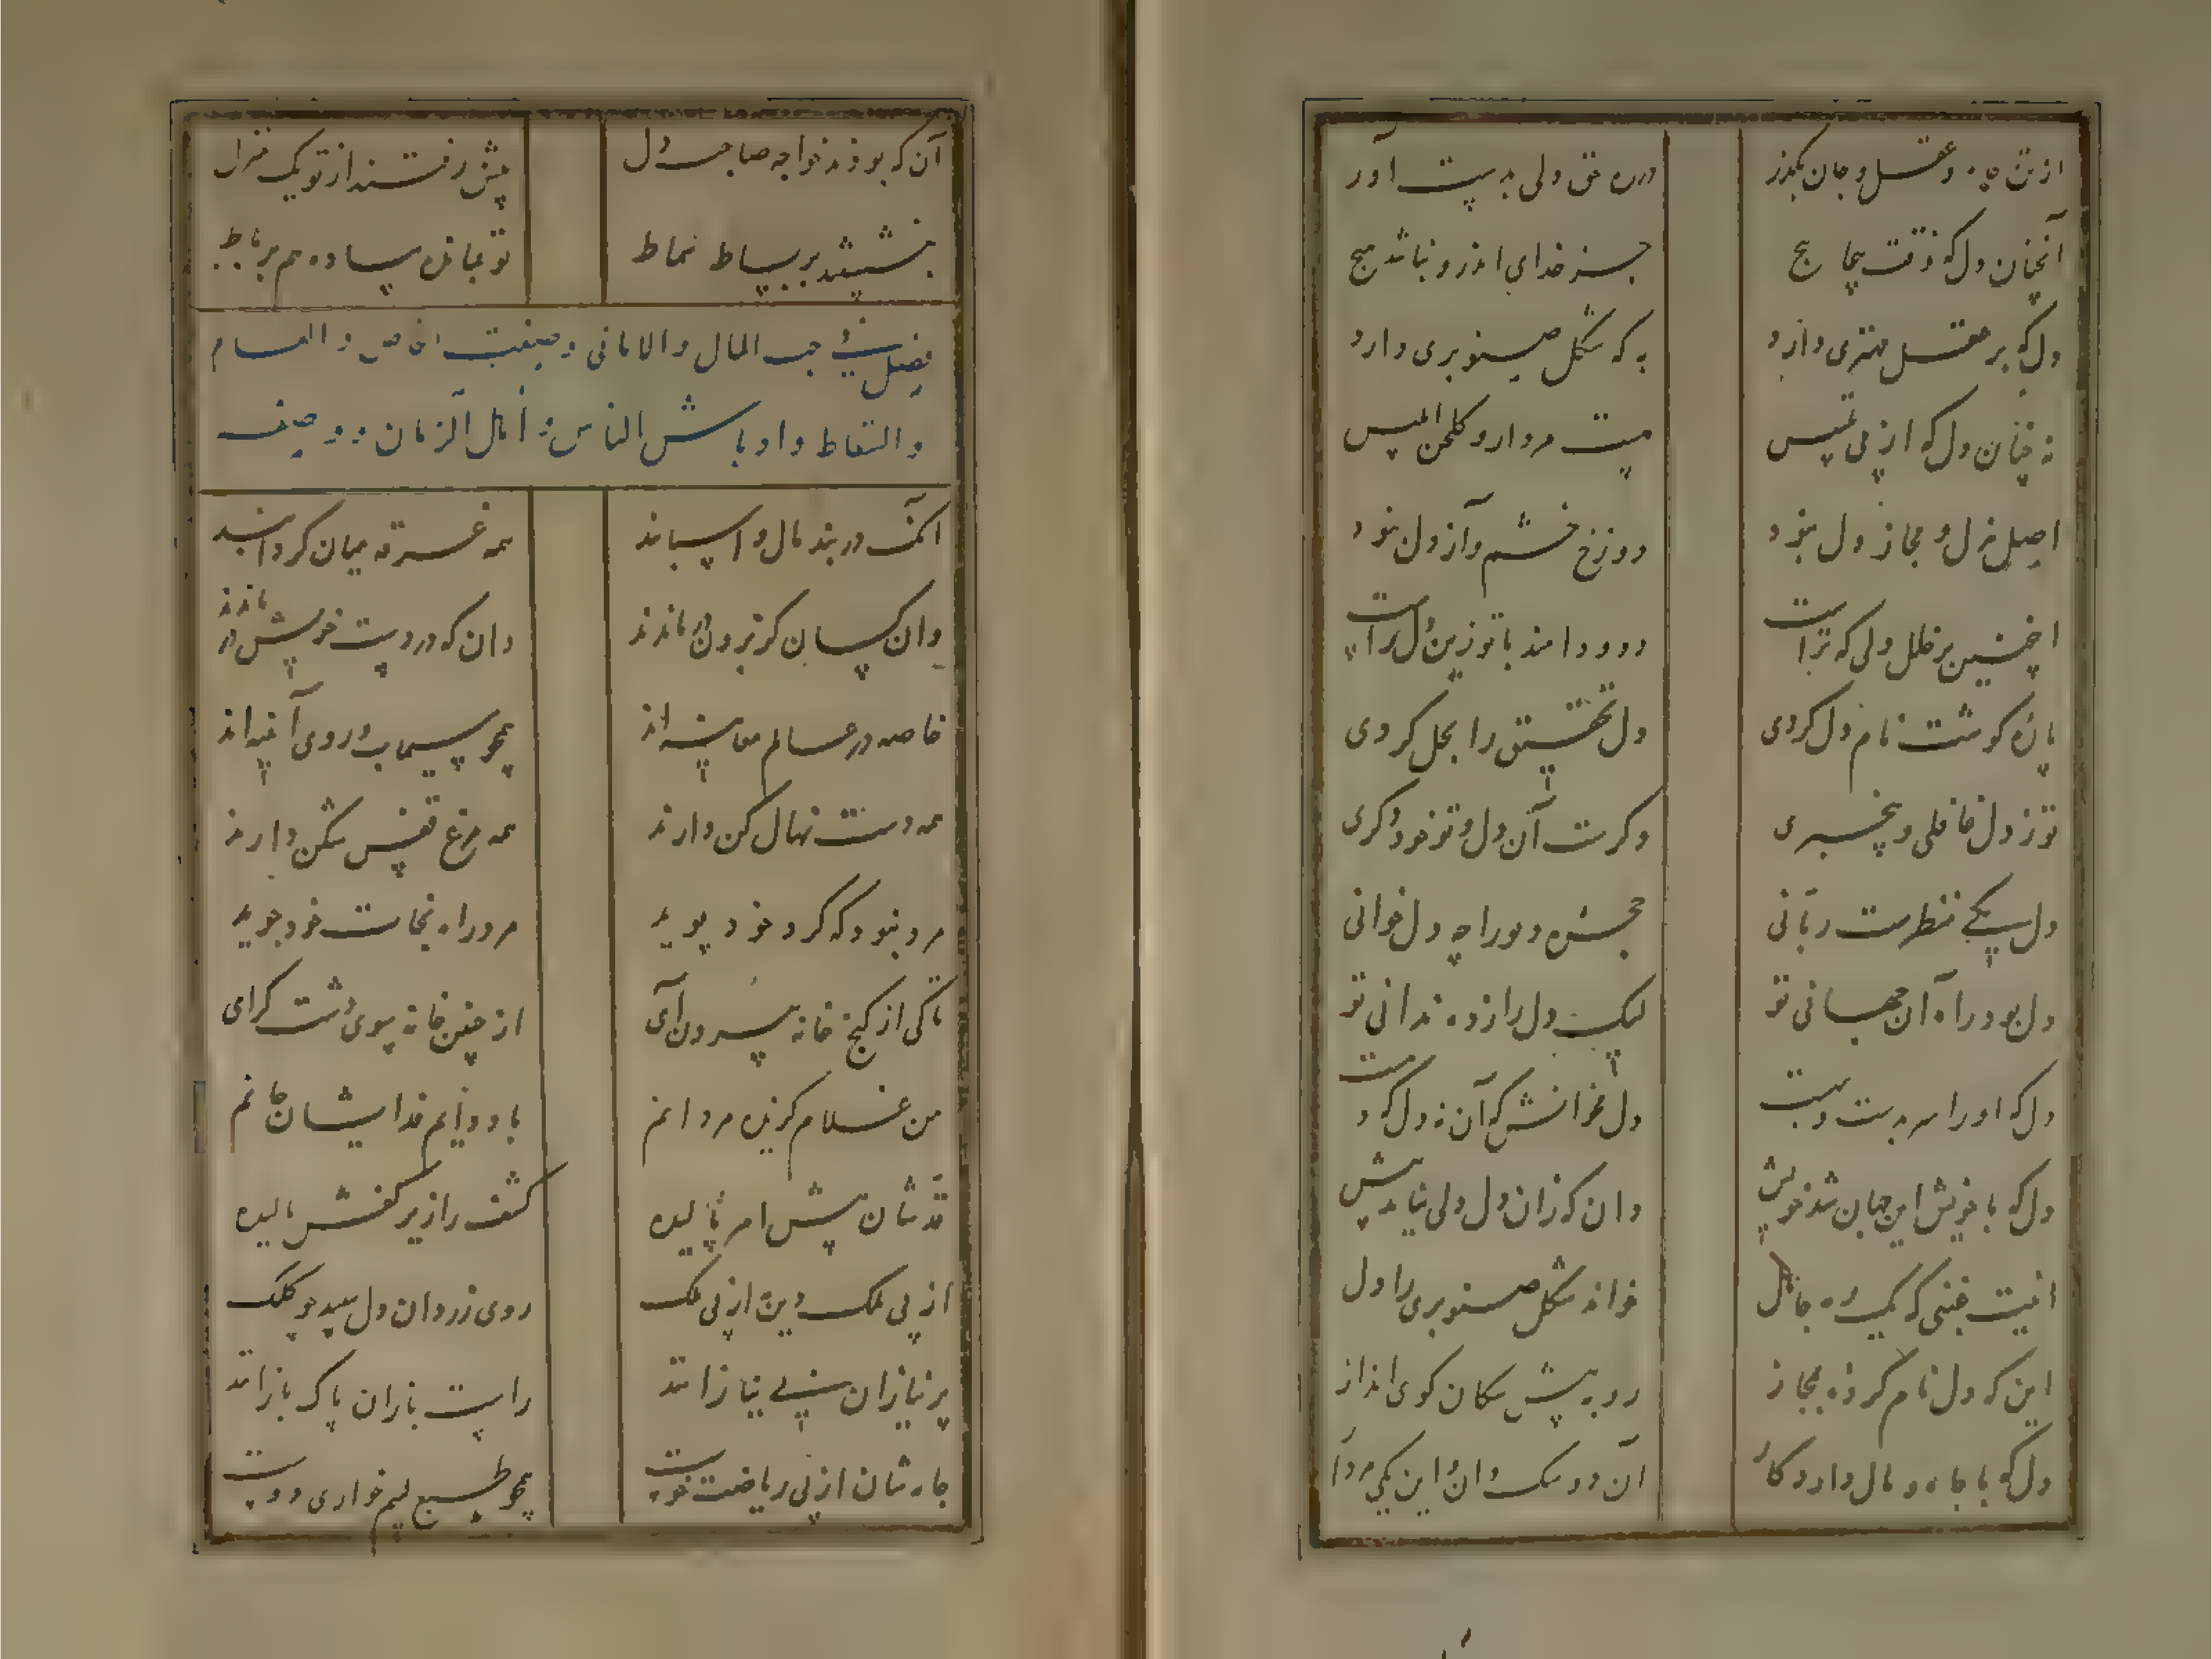 از تن و و عقل و جان بگذر در ره حق دلی بدست آور
آنچنان دل که وقت پیچاپیچ جز خدای اندرو نباشد هیچ
دل که بر عقل مهتری دارد نه که شکل صنوبری دارد
نه چنان دل که از پی تلبیس هست مردار و گلخن ابلیس
اصل هزل و مجاز دل نبود دوزخ خشم و آز دل نبود
اینچنین پر خلل دلی که تراست دد و دامند با تو زین دل راست
پاره گوشت نام دل کردی دل تحقیق را بحل کردی
تو ز دل غافلی و بیخبری دگرست آن دل و تو خود دگری
دل یکی منظرست ربانی حجره دیو را چه دل خوانی
دل بود راه آن جهانی تو لیک دل را زده ندانی تو
دل که او را سر بدست دل مخوانش که آن نه دل که
دل که با خویش این جهان شد خویش دان که زان دل دلی نیاید پیش
اینت غبنی که یک رمه جاهل خوانده شکل صنوبری را دل
این که دل نام کرده بمجاز رو به پیش سگان کوی انداز
دل که با جاه و مال دارد کار آن دو سگ دان و این یکی مردار
آن که بودند خواجه صاحب دل پیش رفتند از تو یک منزل
بنشستند بر بساط نشاط تو بمانده پیاده هم برباط
فصل فی حب المال والامانی وصفت الخاص والعام
والسقاط واوباش الناس واهل الزمان ووصف
آنک در بند مال و اسبابند همه غرقه میان گردابند
وان کسان کز برون در ماندند دان که در دست خویش در ماندند
خاصه در عالم معاینه اند همچو سیماب و روی آینه اند
همه دست نهال کن دارند همه مرغ قفس شکن دارند
مرد نبود که گرد خود پوید مرد راه نجات خود جوید
تا کی از کنج خانه بیرون آی از چنین خانه سوی دشت گرای
من غلام گزیده مردانم باد دایم فدایشان جانم
قدشان پیش امر نالیده کشف را زیر کفش مالیده
از پی ملک دین نه از پی ملک روی زرد و ان دل سپید چو کلک
پر نیازان بی نیازانند راست بازان پاک بازانند
جاهشان از پی ریاضت خوست همچو طبع لئیم خواری دوست